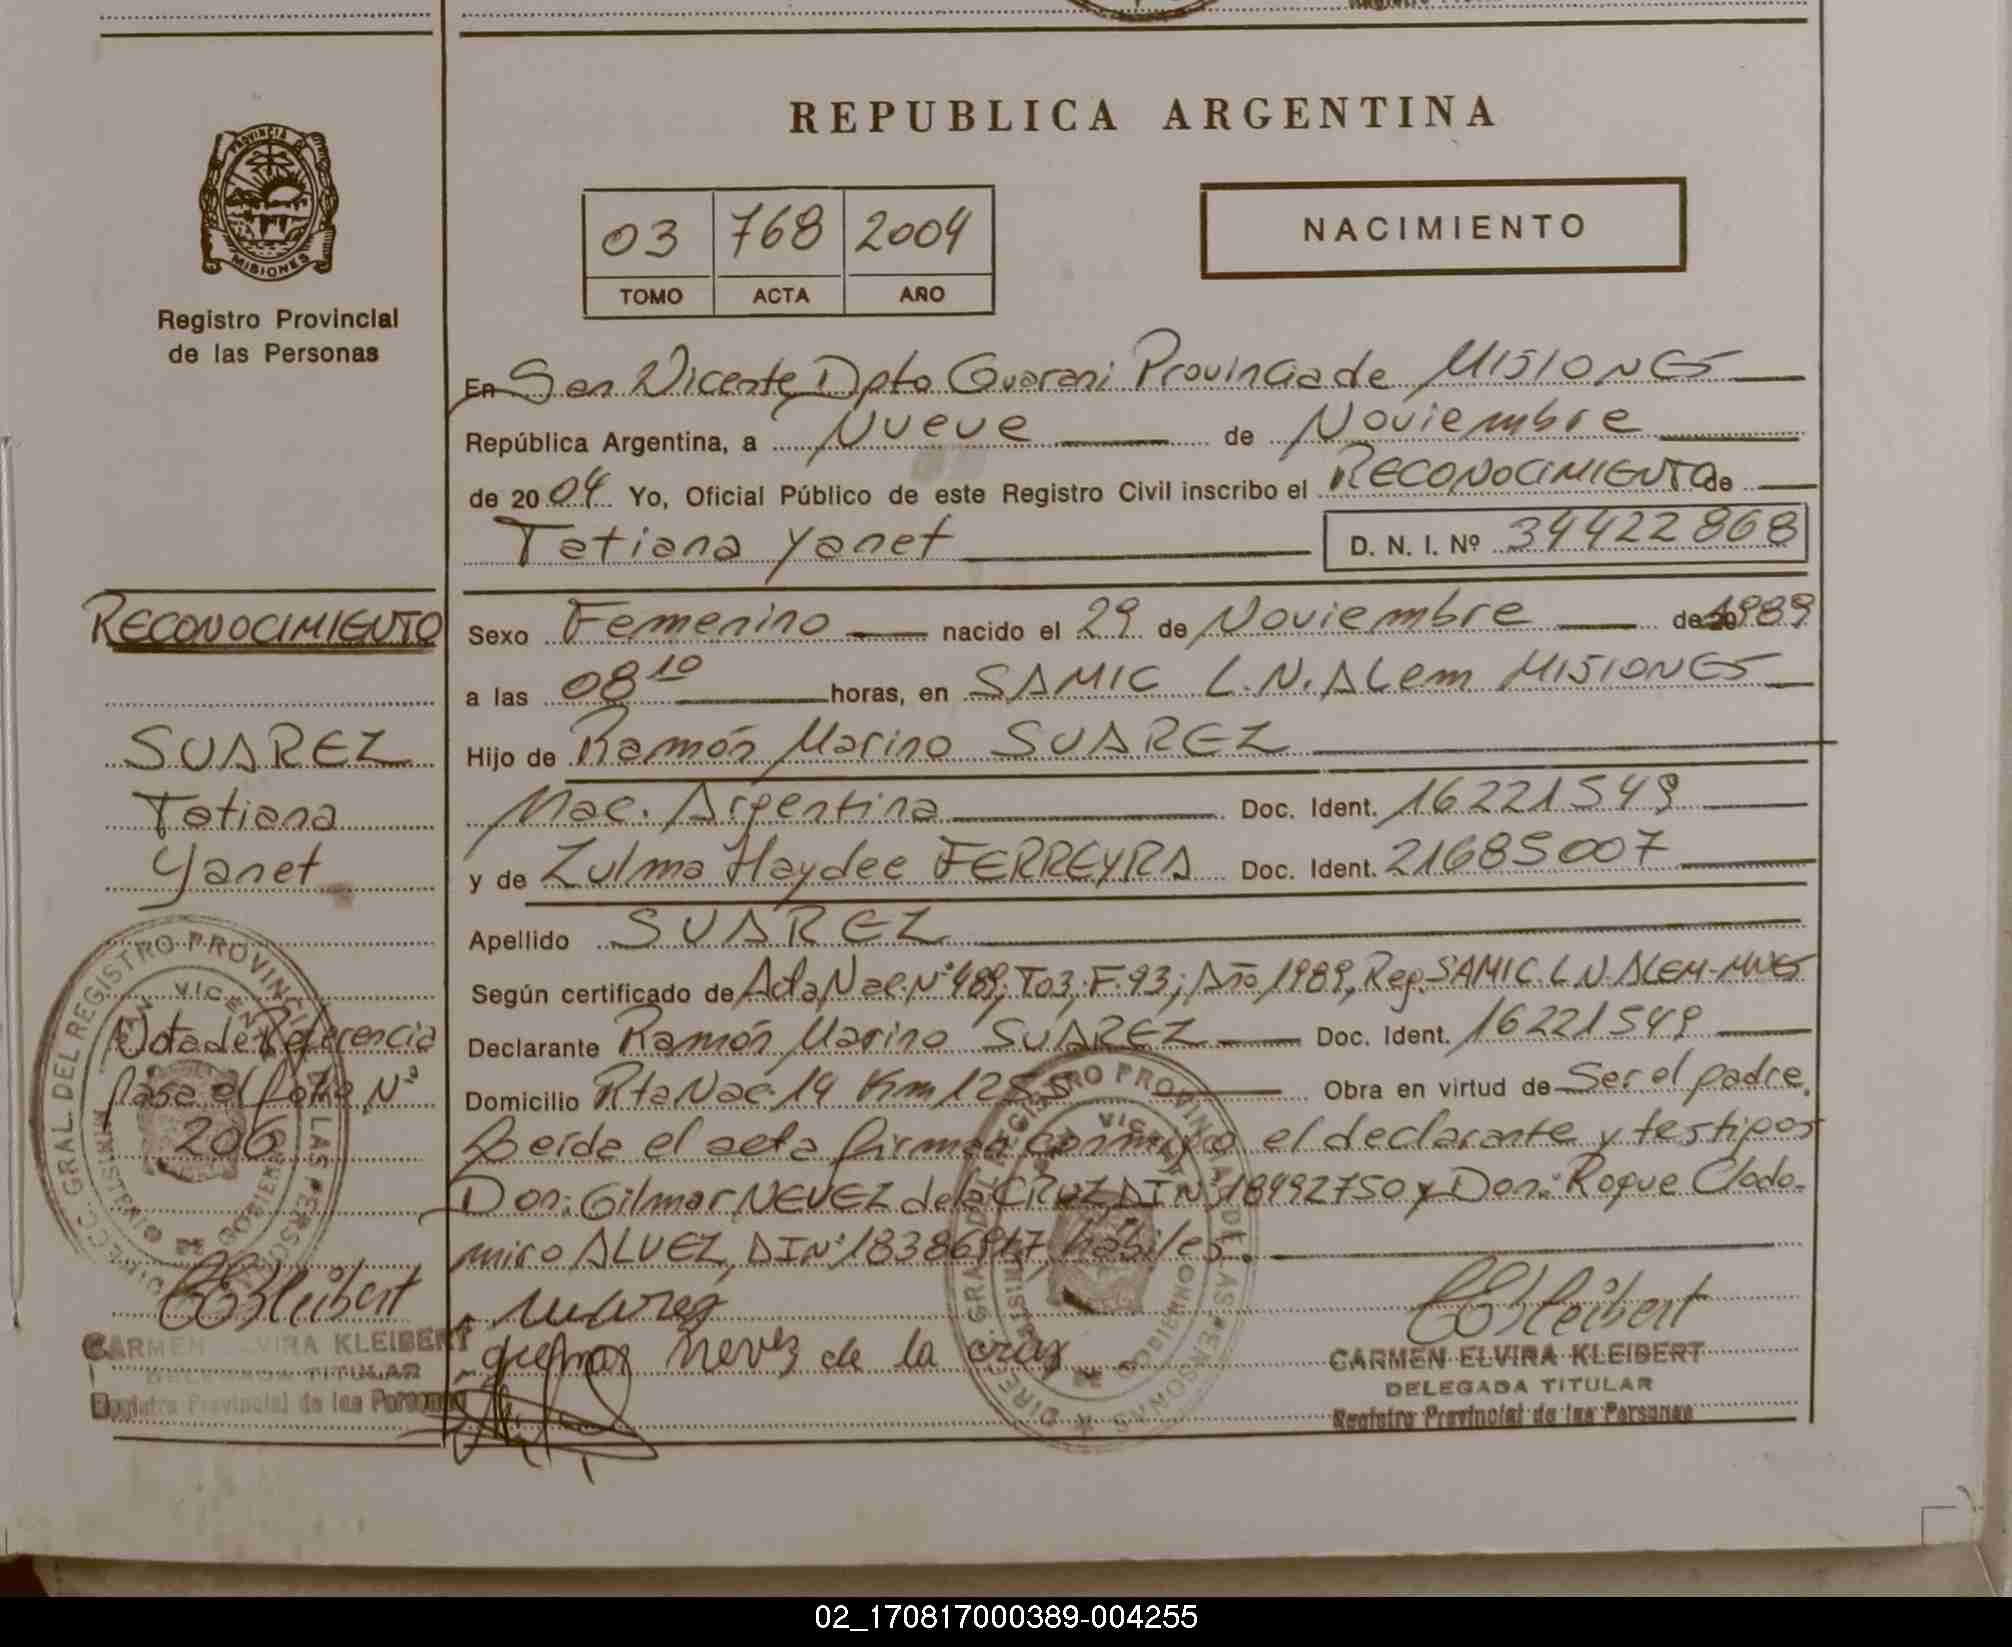 REPUBLICA ARGENTINA
PROVINCIA
MISIONES
Registro Provincial
de las Personas
03 768 2004
TOMO ACTA AÑO
NACIMIENTO
En San Vicente Dpto Guarani Provincia de MISIONES
República Argentina, a Nueve de Noviembre
de 2004 Yo, Oficial Público de este Registro Civil inscribo el RECONOCIMIENTO de
Tatiana Yanet D. N. I. Nº 34422868
RECONOCIMIENTO
SUAREZ
Tatiana
Yanet
Nota de Referencia
pasa al folio Nº
206
Sexo Femenino nacido el 29 de Noviembre de 1989
a las 08 10 horas, en SAMIC L.N. ALem MISIONES
Hijo de Ramón Marino SUAREZ
Nac. Argentina Doc. Ident. 16221549
y de Zulma Haydee FERREYRA Doc. Ident. 21685007
Apellido SUAREZ
Según certificado de Acta Nac. Nº 489; To3, F. 93; Año 1989, Reg. SAMIC L N. ALEM-MNES
Declarante Ramón Marino SUAREZ Doc. Ident. 16221549
Domicilio Rta Nac. 14 Km 1255 Obra en virtud de Ser el padre.
Leida el acta firman conmigo el declarante y testigos
Don: Gilmar NEVEZ de la CRUZ DIN 18492750 y Don: Roque Clodo-
miro ALVEZ, DIN 18386917, hábiles.
nevez de la cruz
CEKleibert
CARMEN ELVIRA KLEIBERT
DELEGADA TITULAR
Registro Provincial de las Personas
CEKleibert
CARMEN ELVIRA KLEIBERT
DELEGADA TITULAR
Registro Provincial de las Personas
DIREC. GRAL. DEL REGISTRO PROVINCIAL DE LAS PERSONAS
SAN VICENTE
MINISTERIO DE GOBIERNO
DIREC. GRAL. DEL REGISTRO PROVINCIAL DE LAS PERSONAS
SAN VICENTE
MINISTERIO DE GOBIERNO
02_170817000389-004255